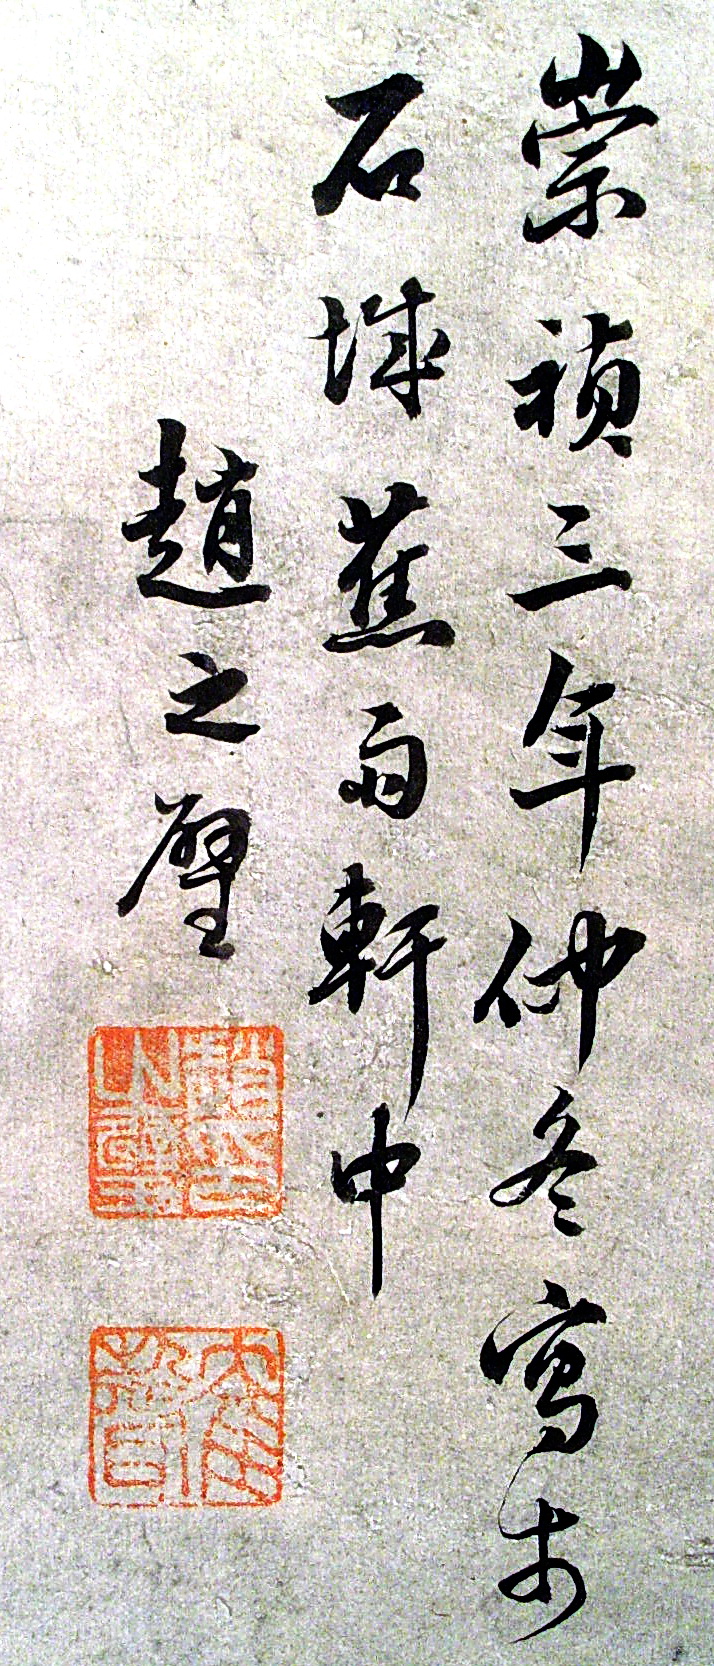 崇禎三年仲冬寫於
石城蕉雨軒中
趙之璧